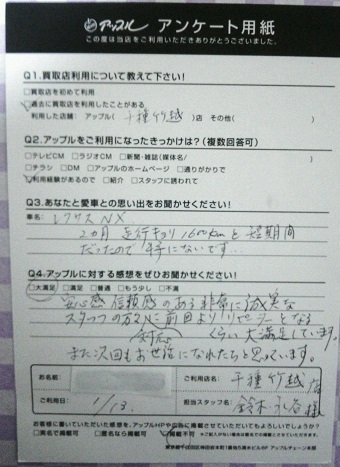 アップル アンケート用紙
この度は当店をご利用いただきありがとうございました。
Q1.買取店利用について教えて下さい!
□買取店を初めて利用
□過去に買取店を利用したことがある
利用した店舗: アップル(千種竹越)店 その他( )
Q2.アップルをご利用になったきっかけは?(複数回答可)
□テレビCM □ラジオCM □新聞・雑誌(媒体名/ )
□チラシ □DM □アップルのホームページ □通りがかりで
□利用経験があるので □紹介 □スタッフに誘われて
Q3.あなたと愛車との思い出をお聞かせください!
車名: レクサスNX
2ヵ月 走行キョリ1600kmと短期間
だったので 特にないです
Q4.アップルに対する感想をぜひお聞かせください!
□大満足 □満足 □普通 □もう少し □不満
安心感 信頼感のある非常に誠実な
スタッフの方々に前回よりリピーターとなる
くらい大満足しています。
また次回もお世話になれたらと思っています。
お名前
ご利用店名: 千種竹越店
ご利用日: 1/13.
担当スタッフ名: 鈴木 様
お客様に書いていただいた感想を、アップルHPや広告に掲載させていただいてもよろしいでしょうか?
□実名で掲載可 □匿名なら掲載可 □掲載不可